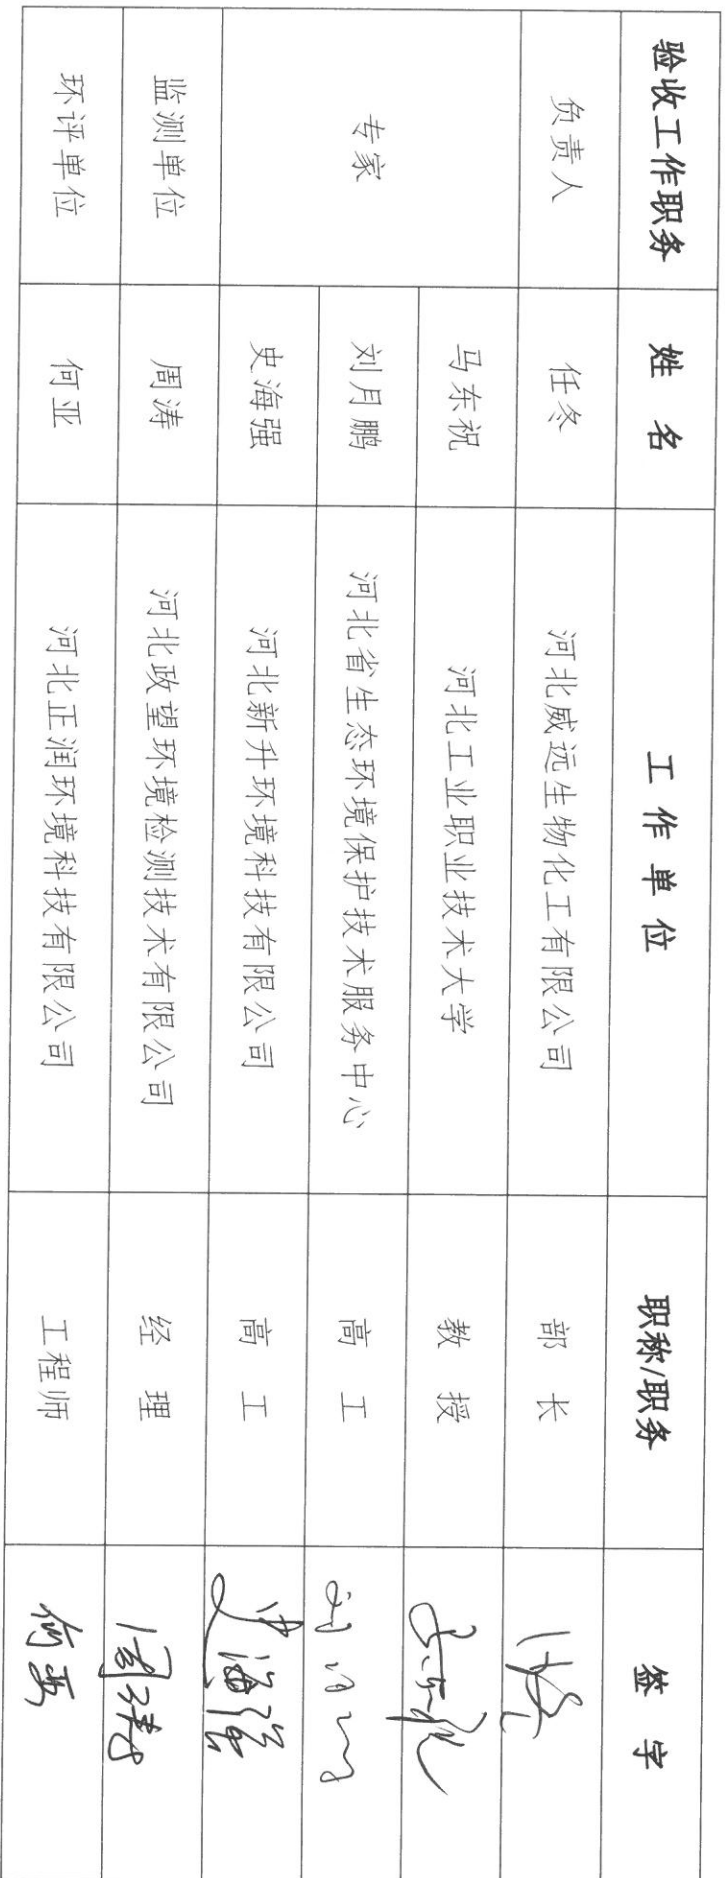 验收工作职务 姓 名 工 作 单 位 职称/职务 签 字
负责人 任冬 河北威远生物化工有限公司 部 长 任冬
专家 马东祝 河北工业职业技术大学 教 授 马东祝
刘月鹏 河北省生态环境保护技术服务中心 高 工 刘月鹏
史海强 河北新升环境科技有限公司 高 工 史海强
监测单位 周涛 河北政望环境检测技术有限公司 经 理 周涛
环评单位 何亚 河北正润环境科技有限公司 工程师 何亚